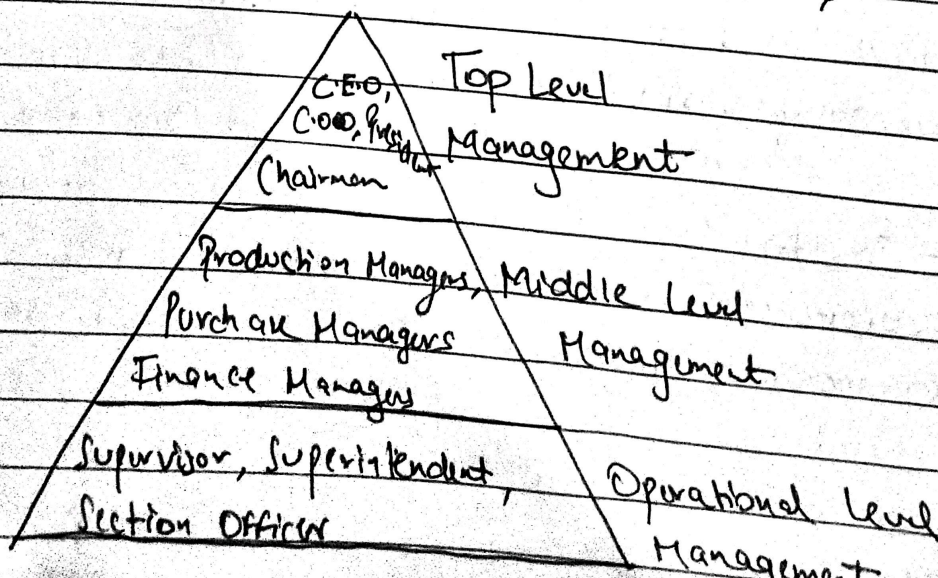 C.E.O,
C.O.O, President
Chairman
Top Level
Management
Production Managers,
Purchase Managers
Finance Managers
Middle Level
Management
Supervisor, Superintendent,
Section Officer
Operational Level
Management